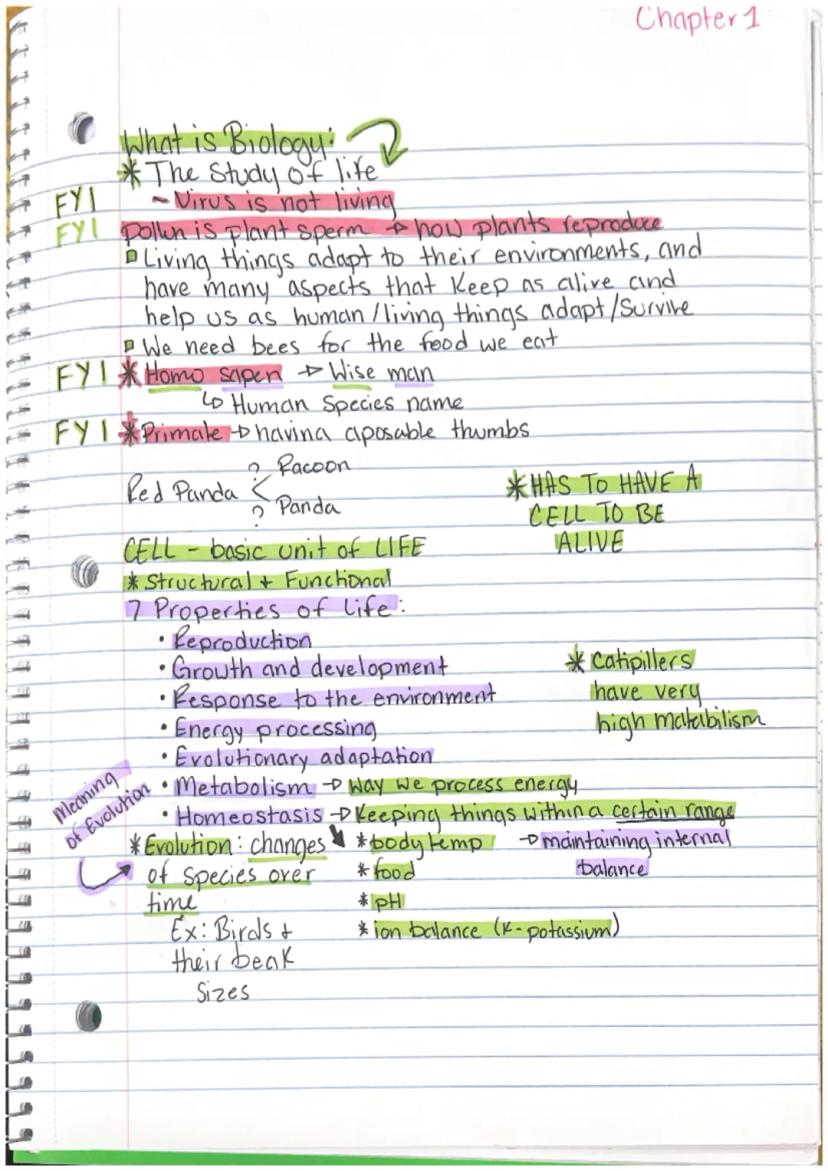 Chapter 1
What is Biology:
* The Study of life
FYI ~ Virus is not living
FYI pollun is plant sperm → how plants reproduce
Living things adapt to their environments, and
have many aspects that keep as alive and
help us as human/living things adapt/survive
We need bees for the food we eat
FYI * Homo sapen → Wise man
↳ Human Species name
FYI * Primate → havina aposable thumbs
? Racoon
Red Panda <
? Panda
* HAS TO HAVE A
CELL TO BE
ALIVE
CELL - basic unit of LIFE
* Structural + Functional
7 Properties of Life:
• Reproduction
• Growth and development
• Response to the environment
• Energy processing
• Evolutionary adaptation
• Metabolism → Way we process energy
• Homeostasis → Keeping things within a certain range
* Catipillers
have very
high matabilism
Meaning
of Evolution
* Evolution: changes
of species over
time
Ex: Birds +
their beak
Sizes
* body temp → maintaining internal
balance
* food
* pH
* ion balance (K-potassium)